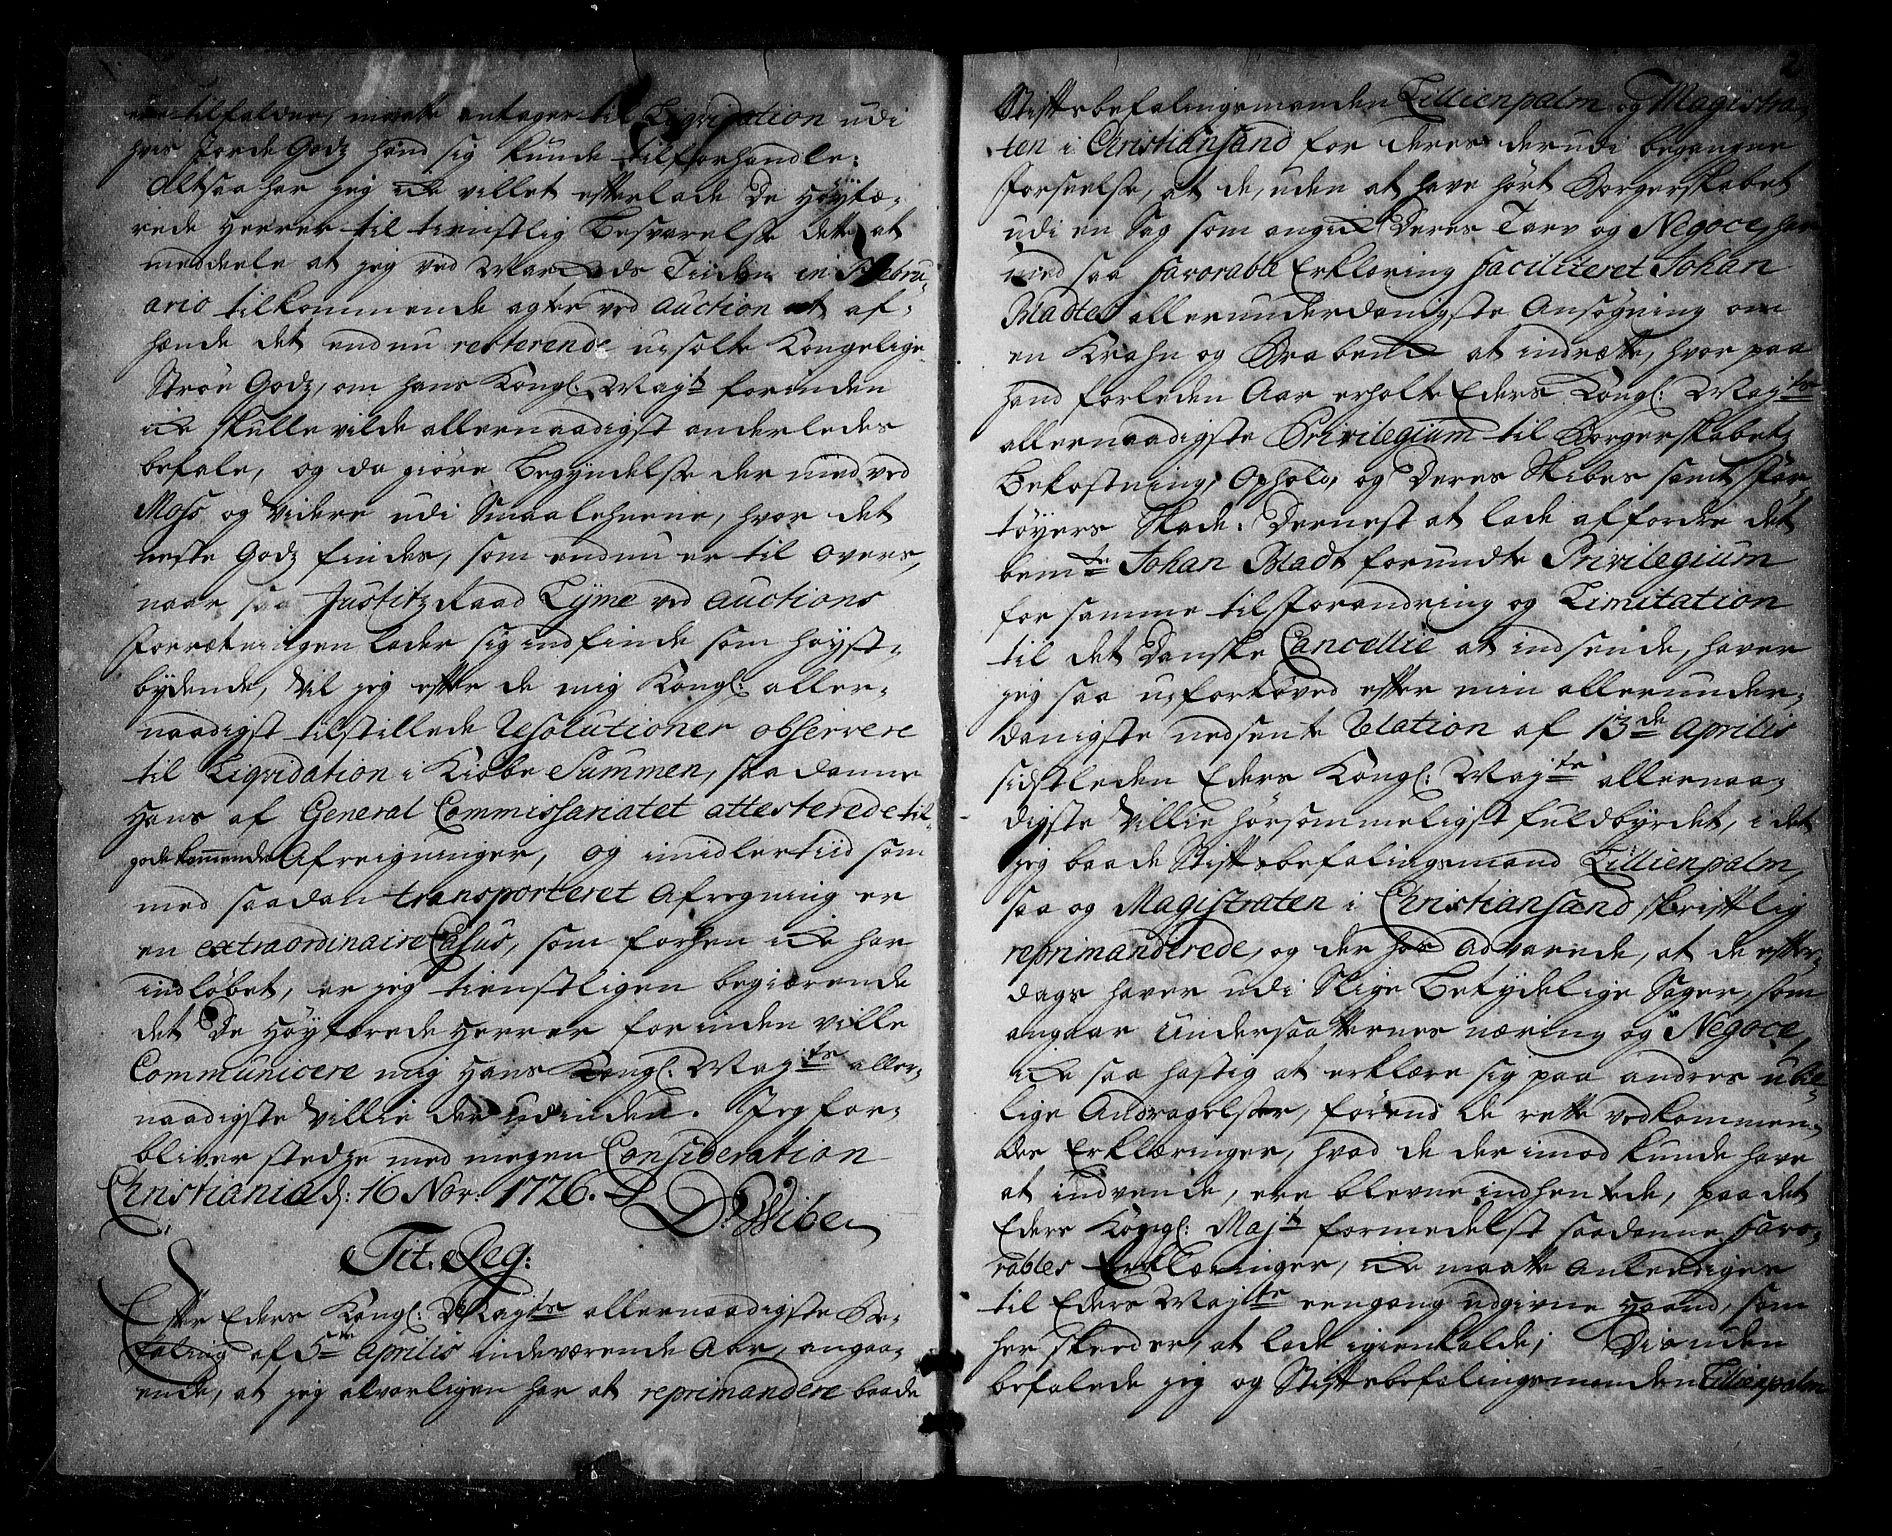 tilfalder, maatte antages til Liqvidation udi
hvis Jorde Godz hand sig kunde tilforhandle:
Altsaa har jeg icke villet efterlade De Høytæ,
rede Herrer til tienstlig Besvarelse dette at
meddeele at jeg ved Markeds Tiiden in Febru,
ario tilkommende agter ved auction at af,
hænde det endnu resterende usolte Kongelige
Strøe Godz, om hans Kongl: Mayts forinden
icke skulle vilde allernaadigst anderledes
befale, og da giøre Begyndelse der med ved
Moss og Videre udi Smaalehnene, hvor det
meste Godz findes, som endnu er til overs,
naar saa Justitz Raad Lyme ved auctions
Forretningen lader sig indfinde som høyst,
bydende, Vil jeg efter de mig Kongl: aller,
naadigst tilstillede Resolutioner observere
til Liqvidation i Kiøbe Summen, saadanne
Hans af General Commissariatet attesterede til,
gode kommende Afreigninger, og imidlertiid som
med saadan transporteret Afregning er
en extraordinaire Casus, som forhen icke har
indløbet, er jeg tienstligen begiærende
det De Høytærede Herrer forinden ville
Communicere mig Hans Kongl: Mayts aller,
naadigste Villie der udinden. Jeg for,
bliver stedze med megen Consideration
Christiania d: 16 Nov: 1726. D: Wibe
Tit. Reg:
Efter Eders Kongl: Mayts allernaadigste Be,
faling af 5te Aprilis indeværende Aar, angaa,
ende, at jeg alvorligen har at reprimandere baade
2
Stiftsbefalingsmanden Lillienpalm og Magistra,
ten i Christiansand for deres derudi begangne
Forseelse, at de, uden at have hørt Borgerskabet
udi en Sag som angick Deres Tarv og Negoce, har
med saa favorable Erklæring faciliteret Johan
Bladtes allerunderdanigste Ansøgning om
en Krahn og Brabenck at indrette, hvor paa
hand forleden Aar erholte Eders Kongl: Mayts
allernaadigste Privilegium til Borgerskabets
Bekostning, Ophold, og Deres Skibes samt Far,
tøyers Skade. Dernest at lade affordre det
bemte Johan Bladt forundte Privilegium
for samme til Forandring og Limitation
til det Danske Cancellie at indsende, haver
jeg saa uforbøved efter min allerunder,
danigste nedsente Relation af 13de Aprilis
sidstleden Eders Kongl: Mayts allernaa,
digste Villie hørsommeligst fuldbyrdet, i det
jeg baade Stiftsbefalingsmand Lillienpalm,
saa og Magistraten i Christiansand skriftlig
reprimanderede, og der hos Advarede, at de efter,
dags haver udi Slige Betydelige Sager, som
angaar Undersaatternes næring og Negoce,
icke saa hastig at erklære sig paa andres ubil,
lige Andragelser, førend de rette vedkommen,
des Erklæringer, hvad de der imod kunde have
at indvende, ere blevne indhentede, paa det
Eders Kongl: Majts formedelst saadanne favo,
rables Erklæringer, icke maatte Anlediges
til Eders Mayts eengang udgivne Haand, som
her skeed er, at lade igienkalde; Vis uden
befalede jeg og Stiftsbefalingsmanden Lillienpalm